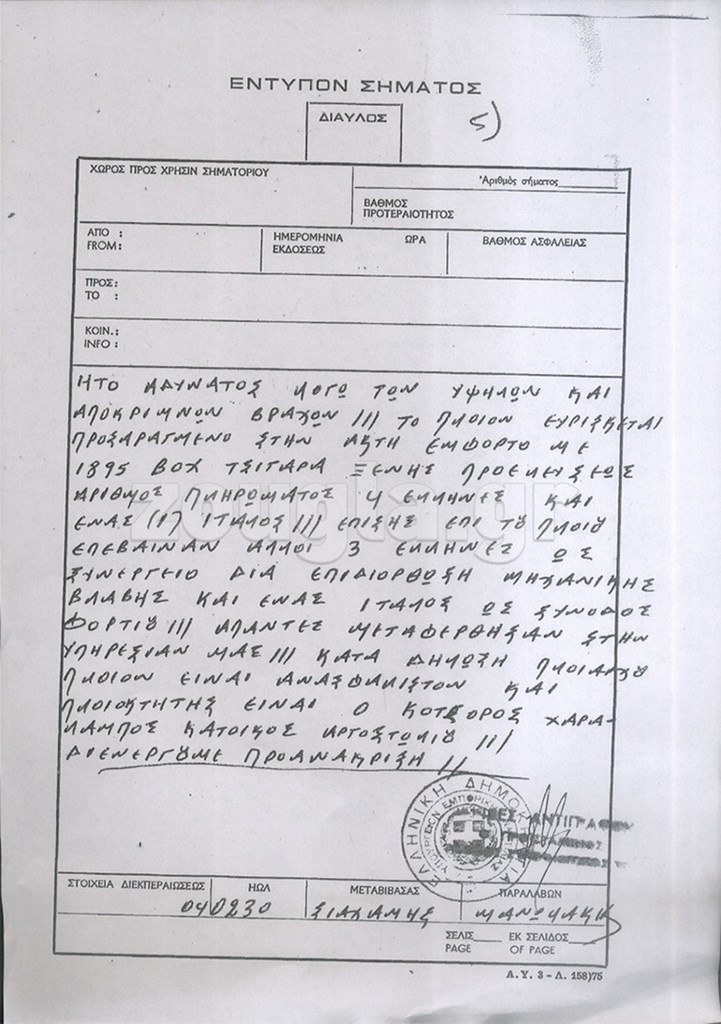 ΕΝΤΥΠΟΝ ΣΗΜΑΤΟΣ
ΔΙΑΥΛΟΣ
5)
ΧΩΡΟΣ ΠΡΟΣ ΧΡΗΣΙΝ ΣΗΜΑΤΟΡΙΟΥ
Ἀριθμὸς σήματος
ΒΑΘΜΟΣ
ΠΡΟΤΕΡΑΙΟΤΗΤΟΣ
ΑΠΟ :
FROM:
ΗΜΕΡΟΜΗΝΙΑ ΩΡΑ
ΕΚΔΟΣΕΩΣ
ΒΑΘΜΟΣ ΑΣΦΑΛΕΙΑΣ
ΠΡΟΣ:
TO :
ΚΟΙΝ.:
INFO :
ΗΤΟ ΑΔΥΝΑΤΟΣ ΛΟΓΩ ΤΩΝ ΥΨΗΛΩΝ ΚΑΙ
ΑΠΟΚΡΙΜΝΩΝ ΒΡΑΧΩΝ /// ΤΟ ΠΛΟΙΟΝ ΕΥΡΙΣΚΕΤΑΙ
ΠΡΟΣΑΡΑΓΜΕΝΟ ΣΤΗΝ ΑΚΤΗ ΕΜΦΟΡΤΟ ΜΕ
1895 BOX ΤΣΙΓΑΡΑ ΞΕΝΗΣ ΠΡΟΕΛΕΥΣΕΩΣ
ΑΡΙΘΜΟΣ ΠΛΗΡΩΜΑΤΟΣ 4 ΕΛΛΗΝΕΣ ΚΑΙ
ΕΝΑΣ (1) ΙΤΑΛΟΣ /// ΕΠΙΣΗΣ ΕΠΙ ΤΟΥ ΠΛΟΙΟΥ
ΕΠΕΒΑΙΝΑΝ ΑΛΛΟΙ 3 ΕΛΛΗΝΕΣ ΩΣ
ΣΥΝΕΡΓΕΙΟ ΔΙΑ ΕΠΙΔΙΟΡΘΩΣΗ ΜΗΧΑΝΙΚΗΣ
ΒΛΑΒΗΣ ΚΑΙ ΕΝΑΣ ΙΤΑΛΟΣ ΩΣ ΣΥΝΟΔΟΣ
ΦΟΡΤΙΟΥ /// ΑΠΑΝΤΕΣ ΜΕΤΑΦΕΡΘΗΣΑΝ ΣΤΗΝ
ΥΠΗΡΕΣΙΑΝ ΜΑΣ /// ΚΑΤΑ ΔΗΛΩΣΗ ΠΛΟΙΑΡΧΟΥ
ΠΛΟΙΟΝ ΕΙΝΑΙ ΑΝΑΣΦΑΛΙΣΤΟΝ ΚΑΙ
ΠΛΟΙΟΚΤΗΤΗΣ ΕΙΝΑΙ Ο ΧΑΡΑ-
ΛΑΜΠΟΣ ΚΑΤΟΙΚΟΣ ΑΡΓΟΣΤΟΛΙΟΥ ///
ΔΙΕΝΕΡΓΟΥΜΕ ΠΡΟΑΝΑΚΡΙΣΗ //
zougla.gr
ΕΛΛΗΝΙΚΗ ΔΗΜΟΚΡΑΤΙΑ
ΥΠΟΥΡΓΕΙΟΝ ΕΜΠΟΡΙΚΗΣ ΝΑΥΤΙΛΙΑΣ
ΑΝΤΙΓΡΑΦΟΝ
ΣΤΟΙΧΕΙΑ ΔΙΕΚΠΕΡΑΙΩΣΕΩΣ
ΗΩΛ
ΜΕΤΑΒΙΒΑΣΑΣ
ΠΑΡΑΛΑΒΩΝ
040230
ΜΑΝΩΛΑΚΗΣ
ΣΕΛΙΣ ΕΚ ΣΕΛΙΔΟΣ
PAGE OF PAGE
Λ.Υ. 3 - Δ. 158)75